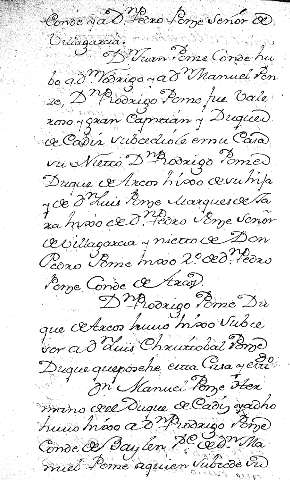 Conde y a Dn. Pedro Ponze Señor de
Villagarcia.
Dn. Juan Ponze Conde hu
bo a dn. Rodrigo y a dn. Manuel Pon
ze, Dn. Rodrigo Ponze fue Vale
roso y gran Capitan y Duque
de Cadiz subcediole en su Casa
su Nietto Dn. Rodrigo Ponze
Duque de Arcos hixo de su hija
y de dn. Luis Ponze Marques de Za
ra hixo de dn. Pedro Ponze Señor
de Villagarcia y nietto de Don
Pedro Ponze hixo 2o. de dn. Pedro
Ponze Conde de Arcos.
Dn. Rodrigo Ponze Du
que de Arcos huuo hixo Subce
sor a dn. Luis Christobal Ponze
Duque que posehe esta Casa y
Dn. Manuel Ponze Her
mano del Duque de Cadiz
huuo hixo a dn. Rodrigo Ponze
Conde de Baylen de dn. Ma
nuel Ponze a quien Subcede su